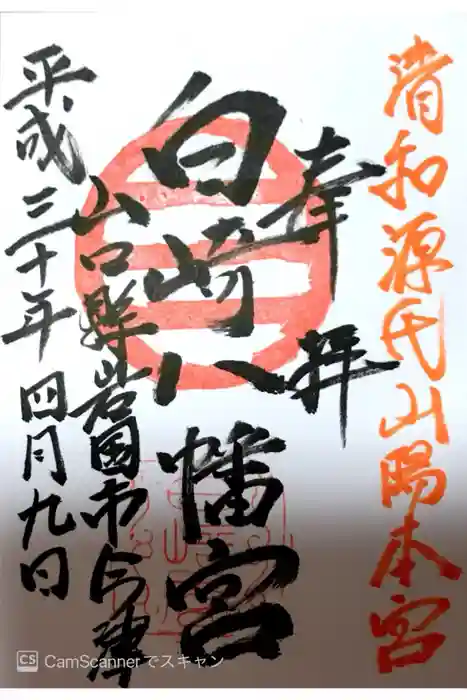 清和源氏山陽本宮
奉拝
白崎八幡宮
山口県岩国市今津
平成三十年四月九日
CS CamScannerでスキャン